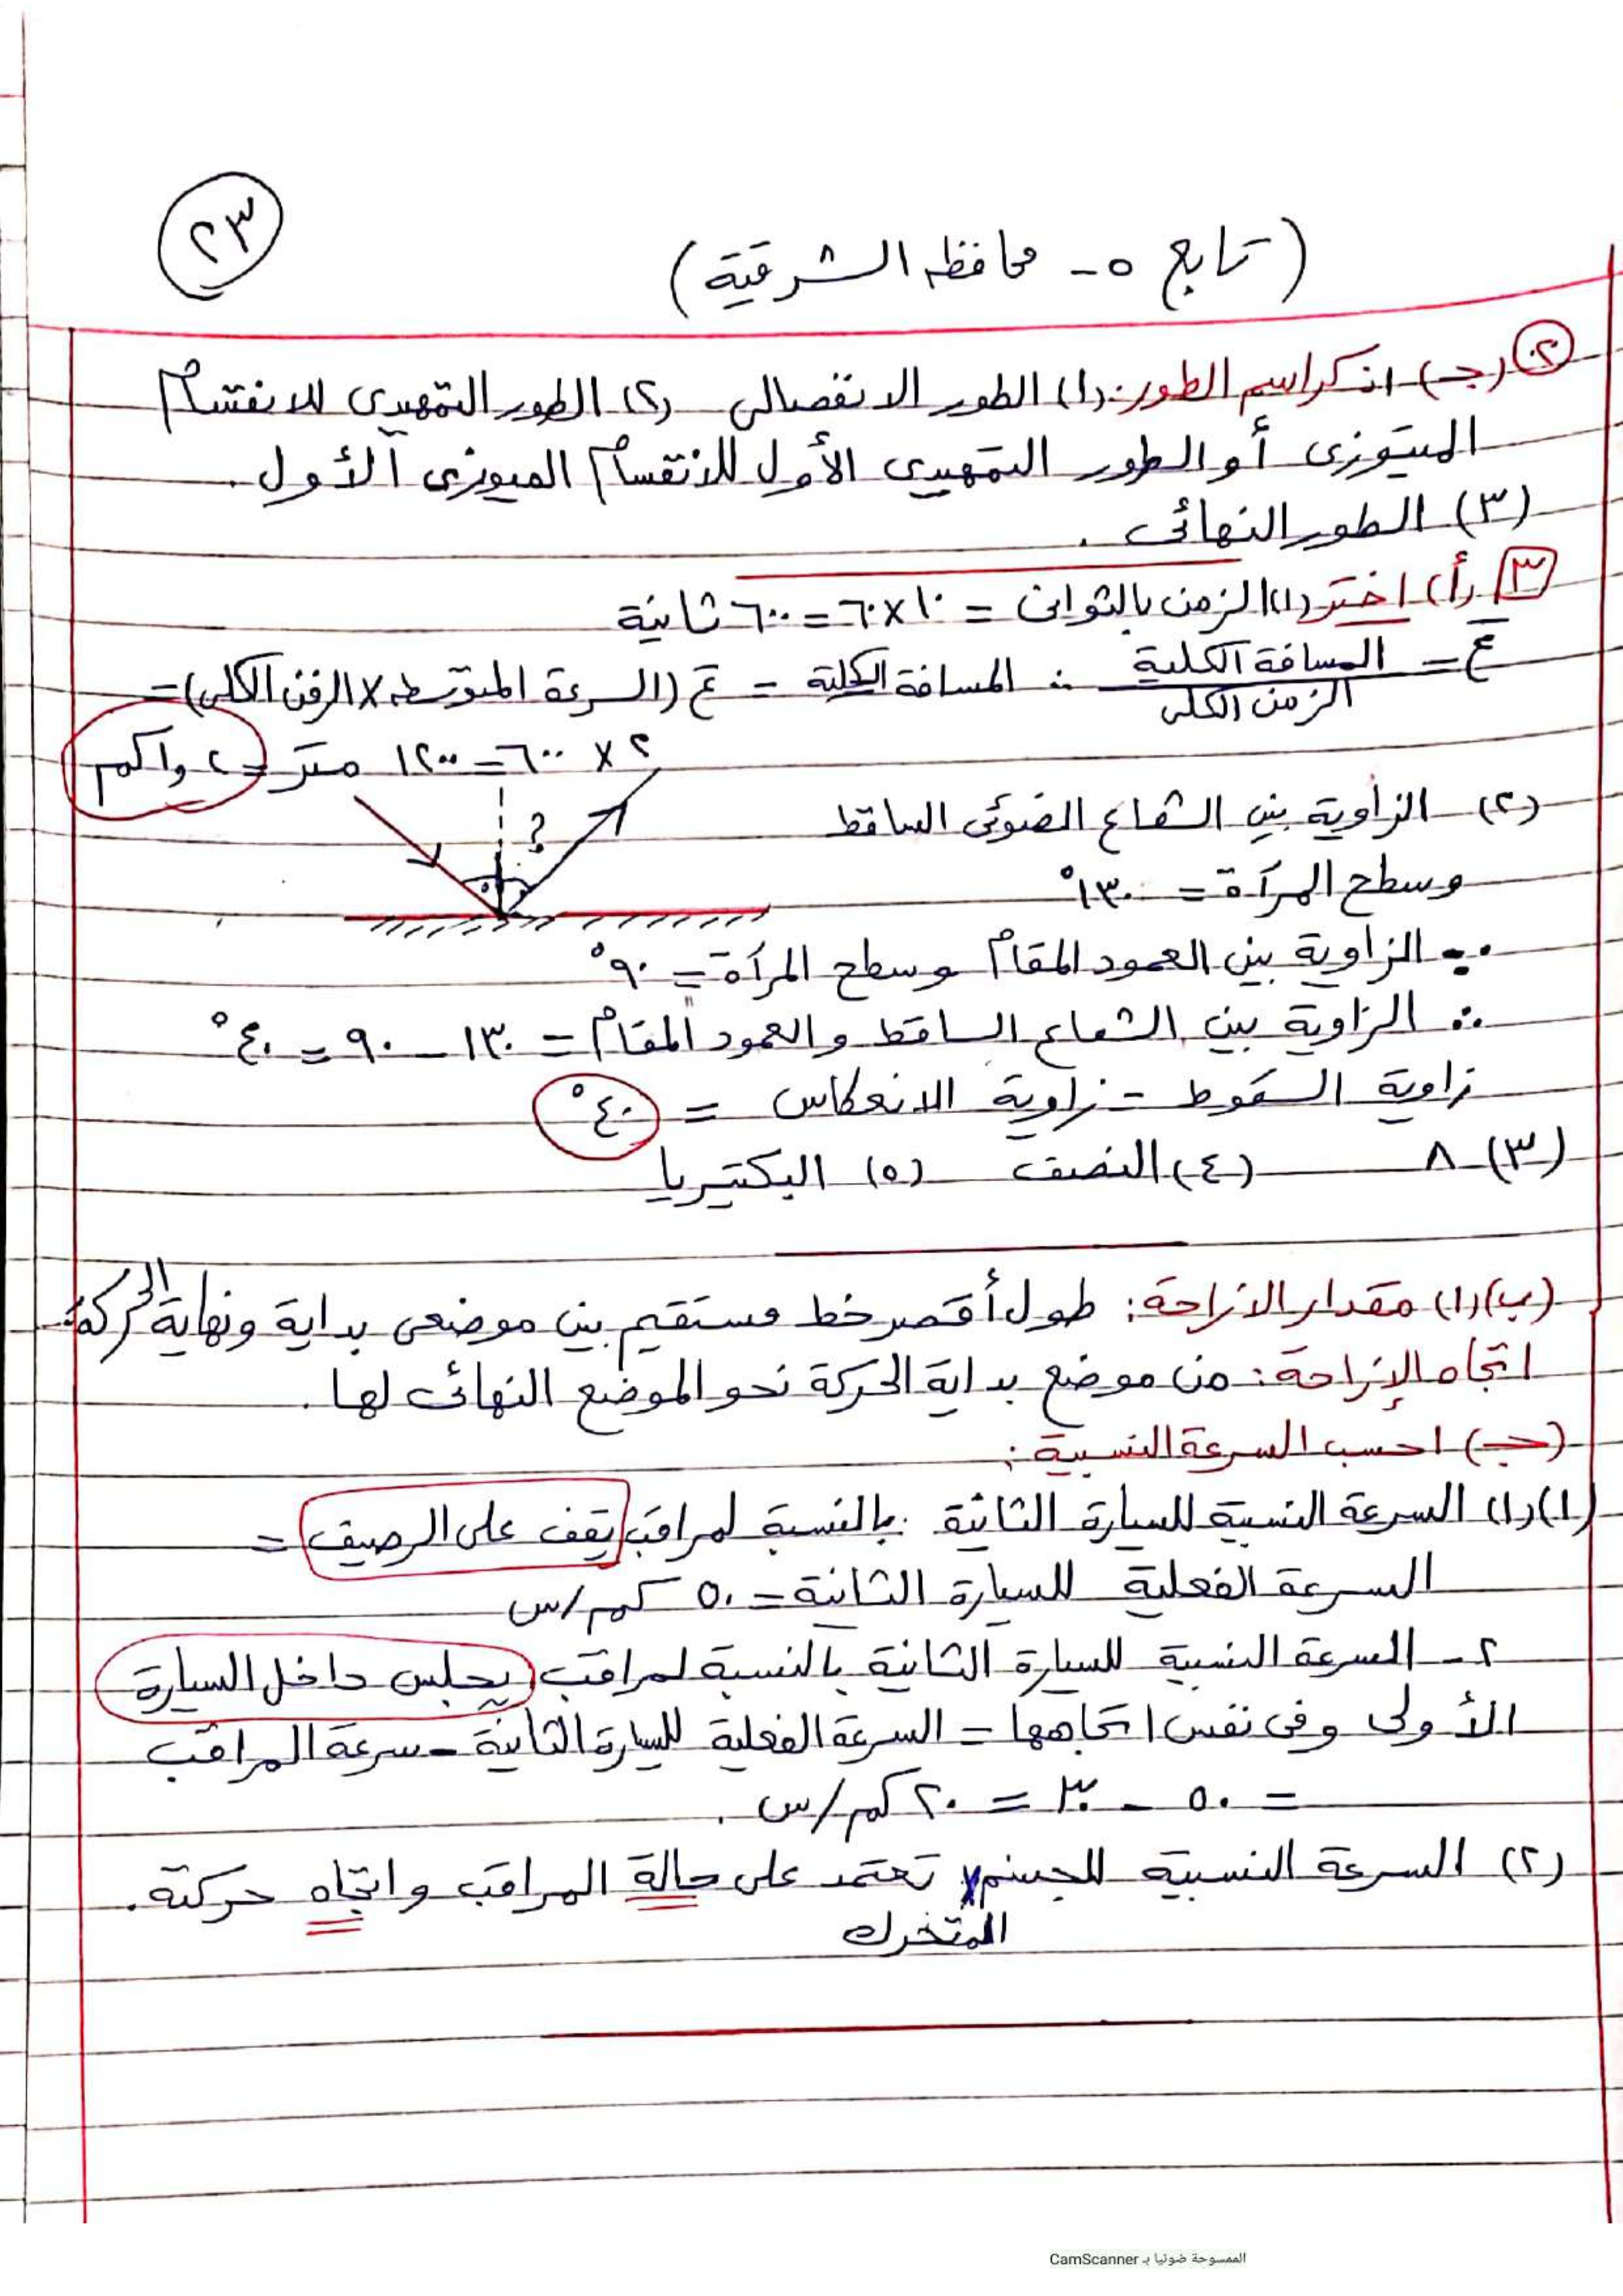 ٢٣
(تابع ٥- محافظة الشرقية)
٢ (جـ) اذكر اسم الطور: (١) الطور الانفصالى (٢) الطور التمهيدى للانقسام
الميتوزى أو الطور التمهيدى الأول للانقسام الميوزى الأول.
(٣) الطور النهائى.
٣ (أ) اختر (١) الزمن بالثوانى = ١٠ × ٦٠ = ٦٠٠ ثانية
ع = المسافة الكلية / الزمن الكلى ∴ المسافة الكلية = ع (السرعة المتوسطه × الزمن الكلى) =
٢ × ٦٠٠ = ١٢٠٠ متر = ١,٢ كم
(٢) الزاوية بين الشعاع الضوئى الساقط
؟
وسطح المرآة = ١٣٠°
∵ الزاوية بين العمود المقام وسطح المرآة = ٩٠°
∴ الزاوية بين الشعاع الساقط والعمود المقام = ١٣٠ - ٩٠ = ٤٠°
زاوية السقوط = زاوية الانعكاس = ٤٠°
(٣) ٨ (٤) النصف (٥) البكتيريا
(ب) (١) مقدار الازاحة: طول أقصر خط مستقيم بين موضعى بداية ونهاية الحركة
اتجاه الإزاحة: من موضع بداية الحركة نحو الموضع النهائى لها.
(جـ) احسب السرعة النسبية:
(١) (١) السرعة النسبية للسيارة الثانية بالنسبة لمراقب يقف على الرصيف =
السرعة الفعلية للسيارة الثانية = ٥٠ كم/س
٢- السرعة النسبية للسيارة الثانية بالنسبة لمراقب يجلس داخل السيارة
الأولى وفى نفس اتجاهها = السرعة الفعلية للسيارة الثانية - سرعة المراقب
= ٥٠ - ٣٠ = ٢٠ كم/س.
(٢) السرعة النسبية للجسم تعتمد على حالة المراقب واتجاه حركته.
المتحرك
الممسوحة ضوئيا بـ CamScanner